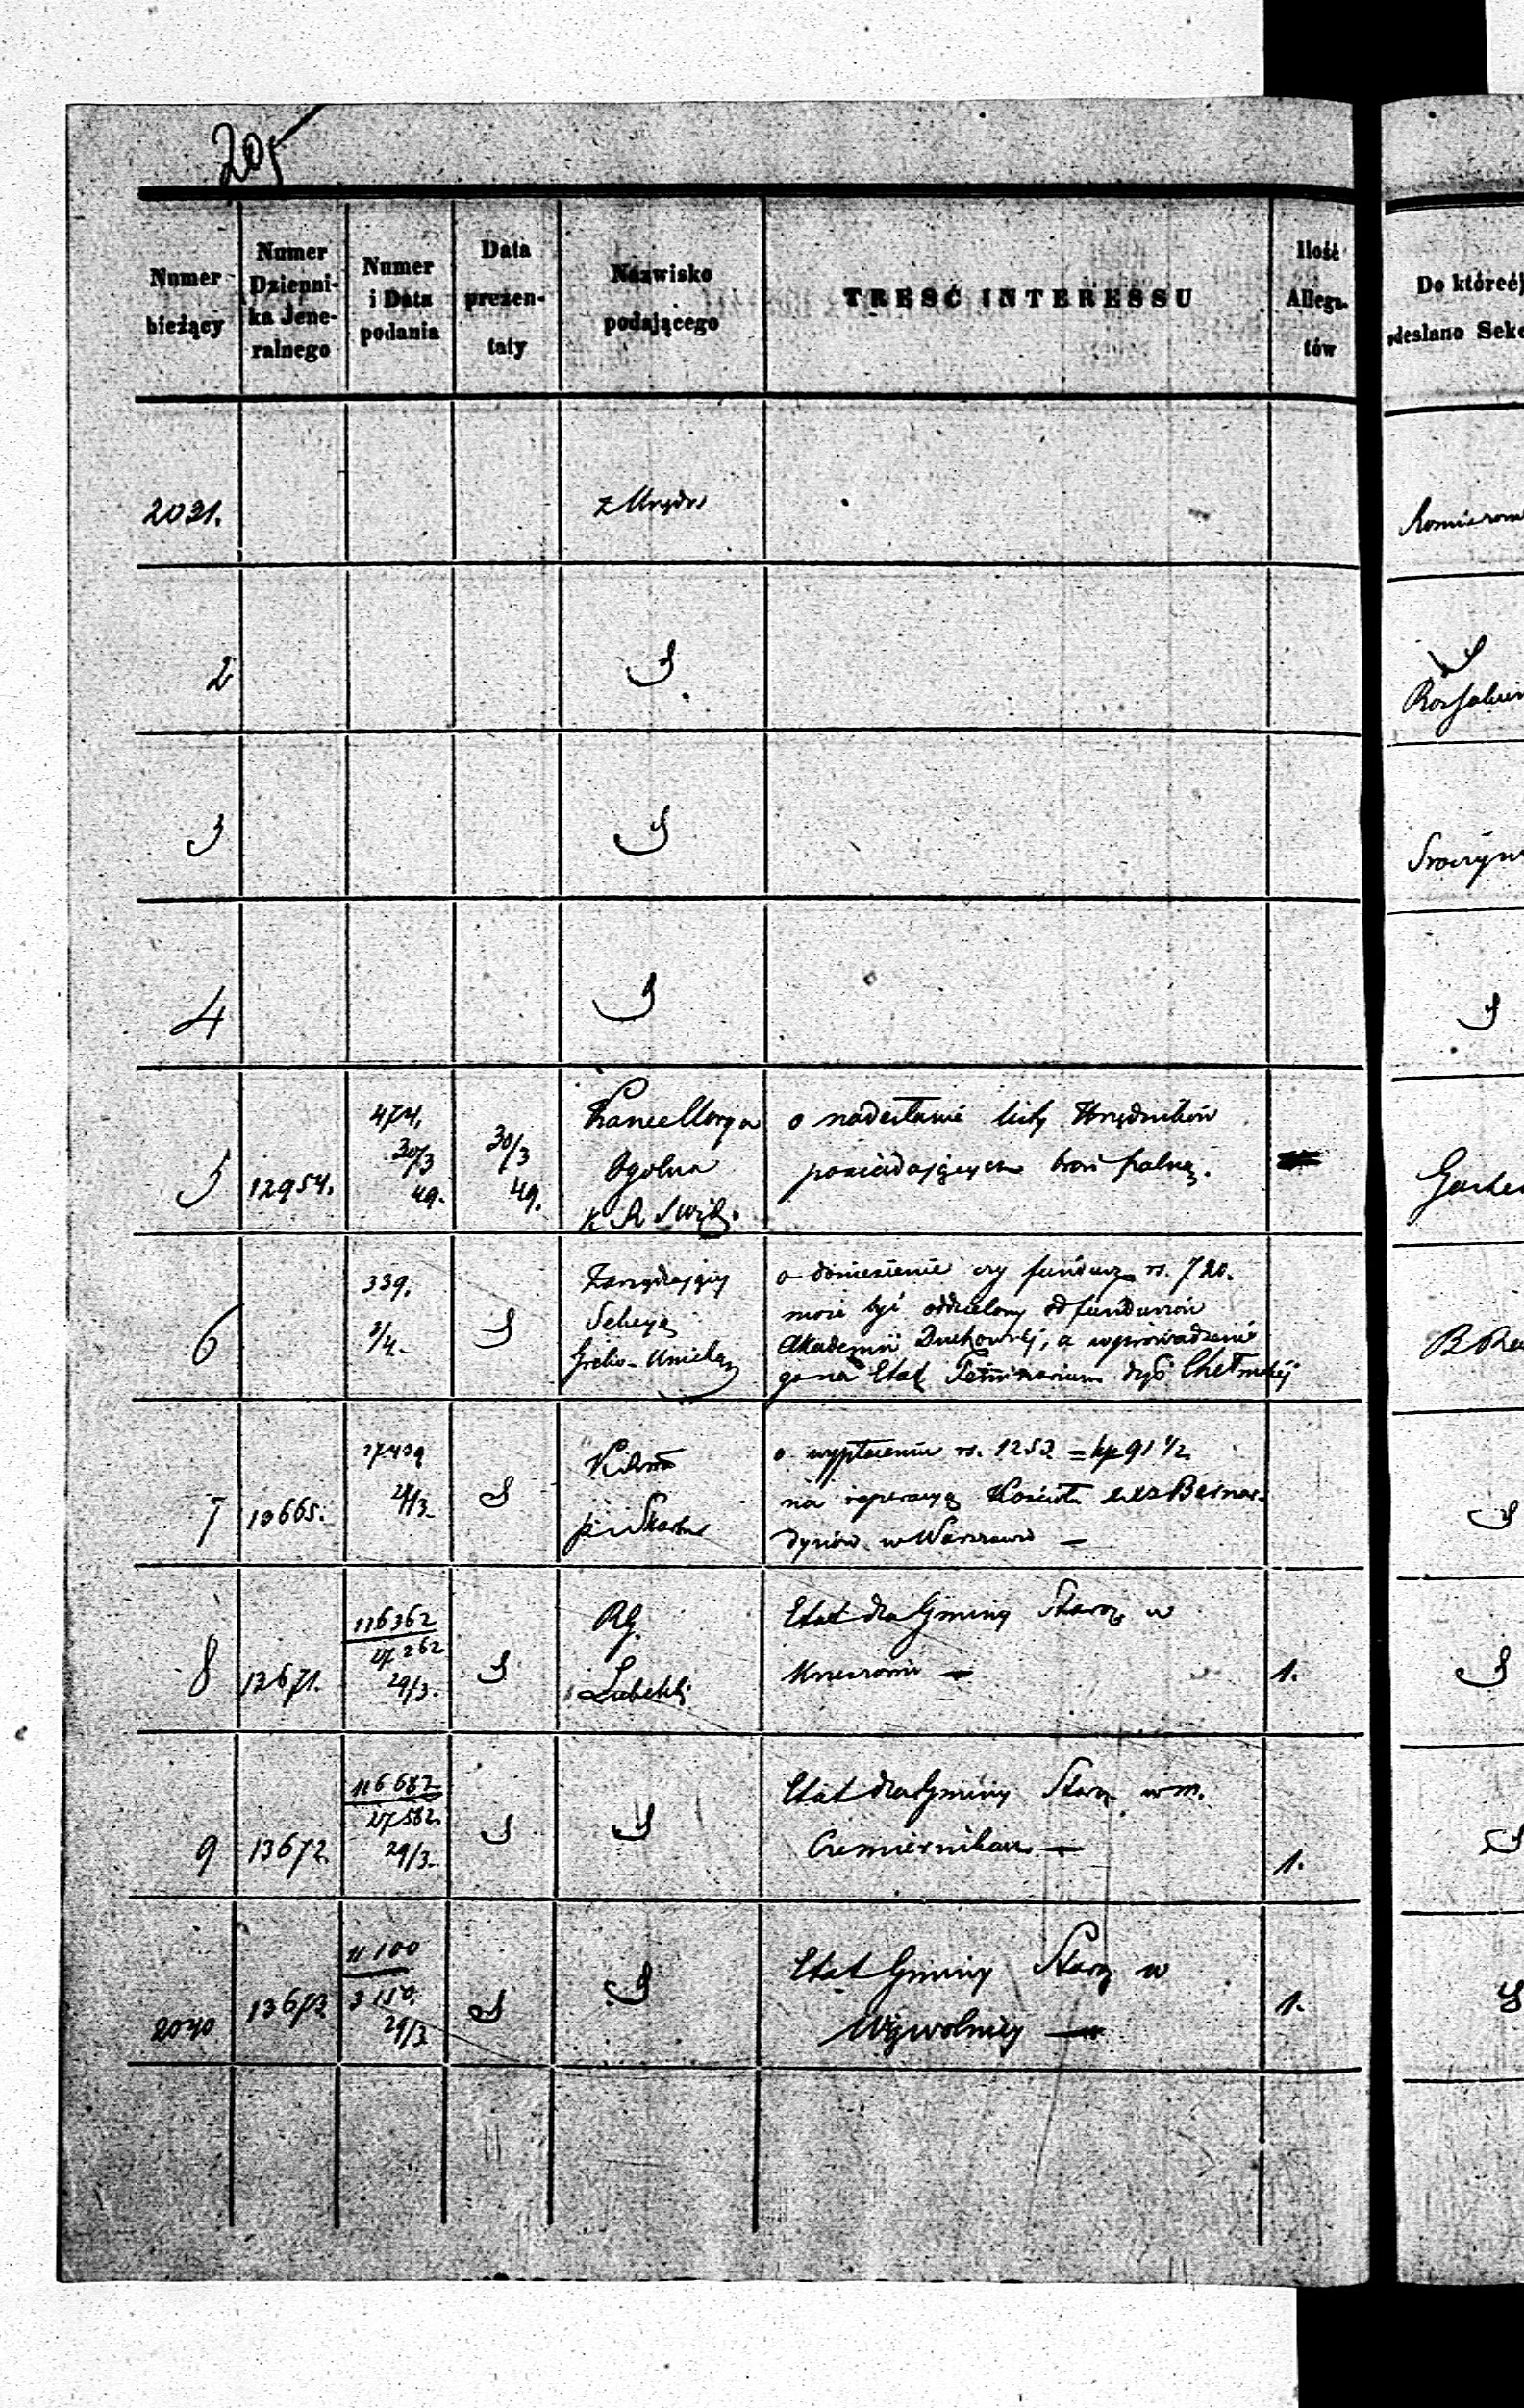 205
Numer bieżący
Numer Dzienni-ka Jene-ralnego
Numer i Data podania
Data prezen-taty
Nazwisko podającego
TREŚĆ INTERESSU
Ilość Allega-tów
Do któreéj
odesłano Sekc
2031.
z Urzędu
2
3
4
5
12954.
474.
30/3
49.
30/3
49.
Kancellarya
Ogólna
K R S W i D.
o nadesłanie listy Urzędników
posiadających broń palną.
6
339.
3/4.
Zarządzający
Sekcyą
Greko-Unicką
o doniesienie czy fundusz rs. 720.
może być oddzielony od funduszów
Akademii Duchownéj, a wprowadzenie
go na Etat Seminarium dyo Chełmskiéj
7
13665.
27/3
P. i Skarbu
o wypłacenie rs. 1252 = kp 91 1/2
na reperacyą Kościoła Bernar-
dynów w Warszawie —
8
13671.
116362
27262
29/3.
RG.
Lubelski
Etat dla Gminy Staroz w
1.
9
13672.
116682
27582.
29/3.
Etat dla Gminy Staroz w m.
Czemiernikach —
1.
2040
13673
11100
3110.
29/3
Etat Gminy Staroz w
Wąwolnicy —
1.